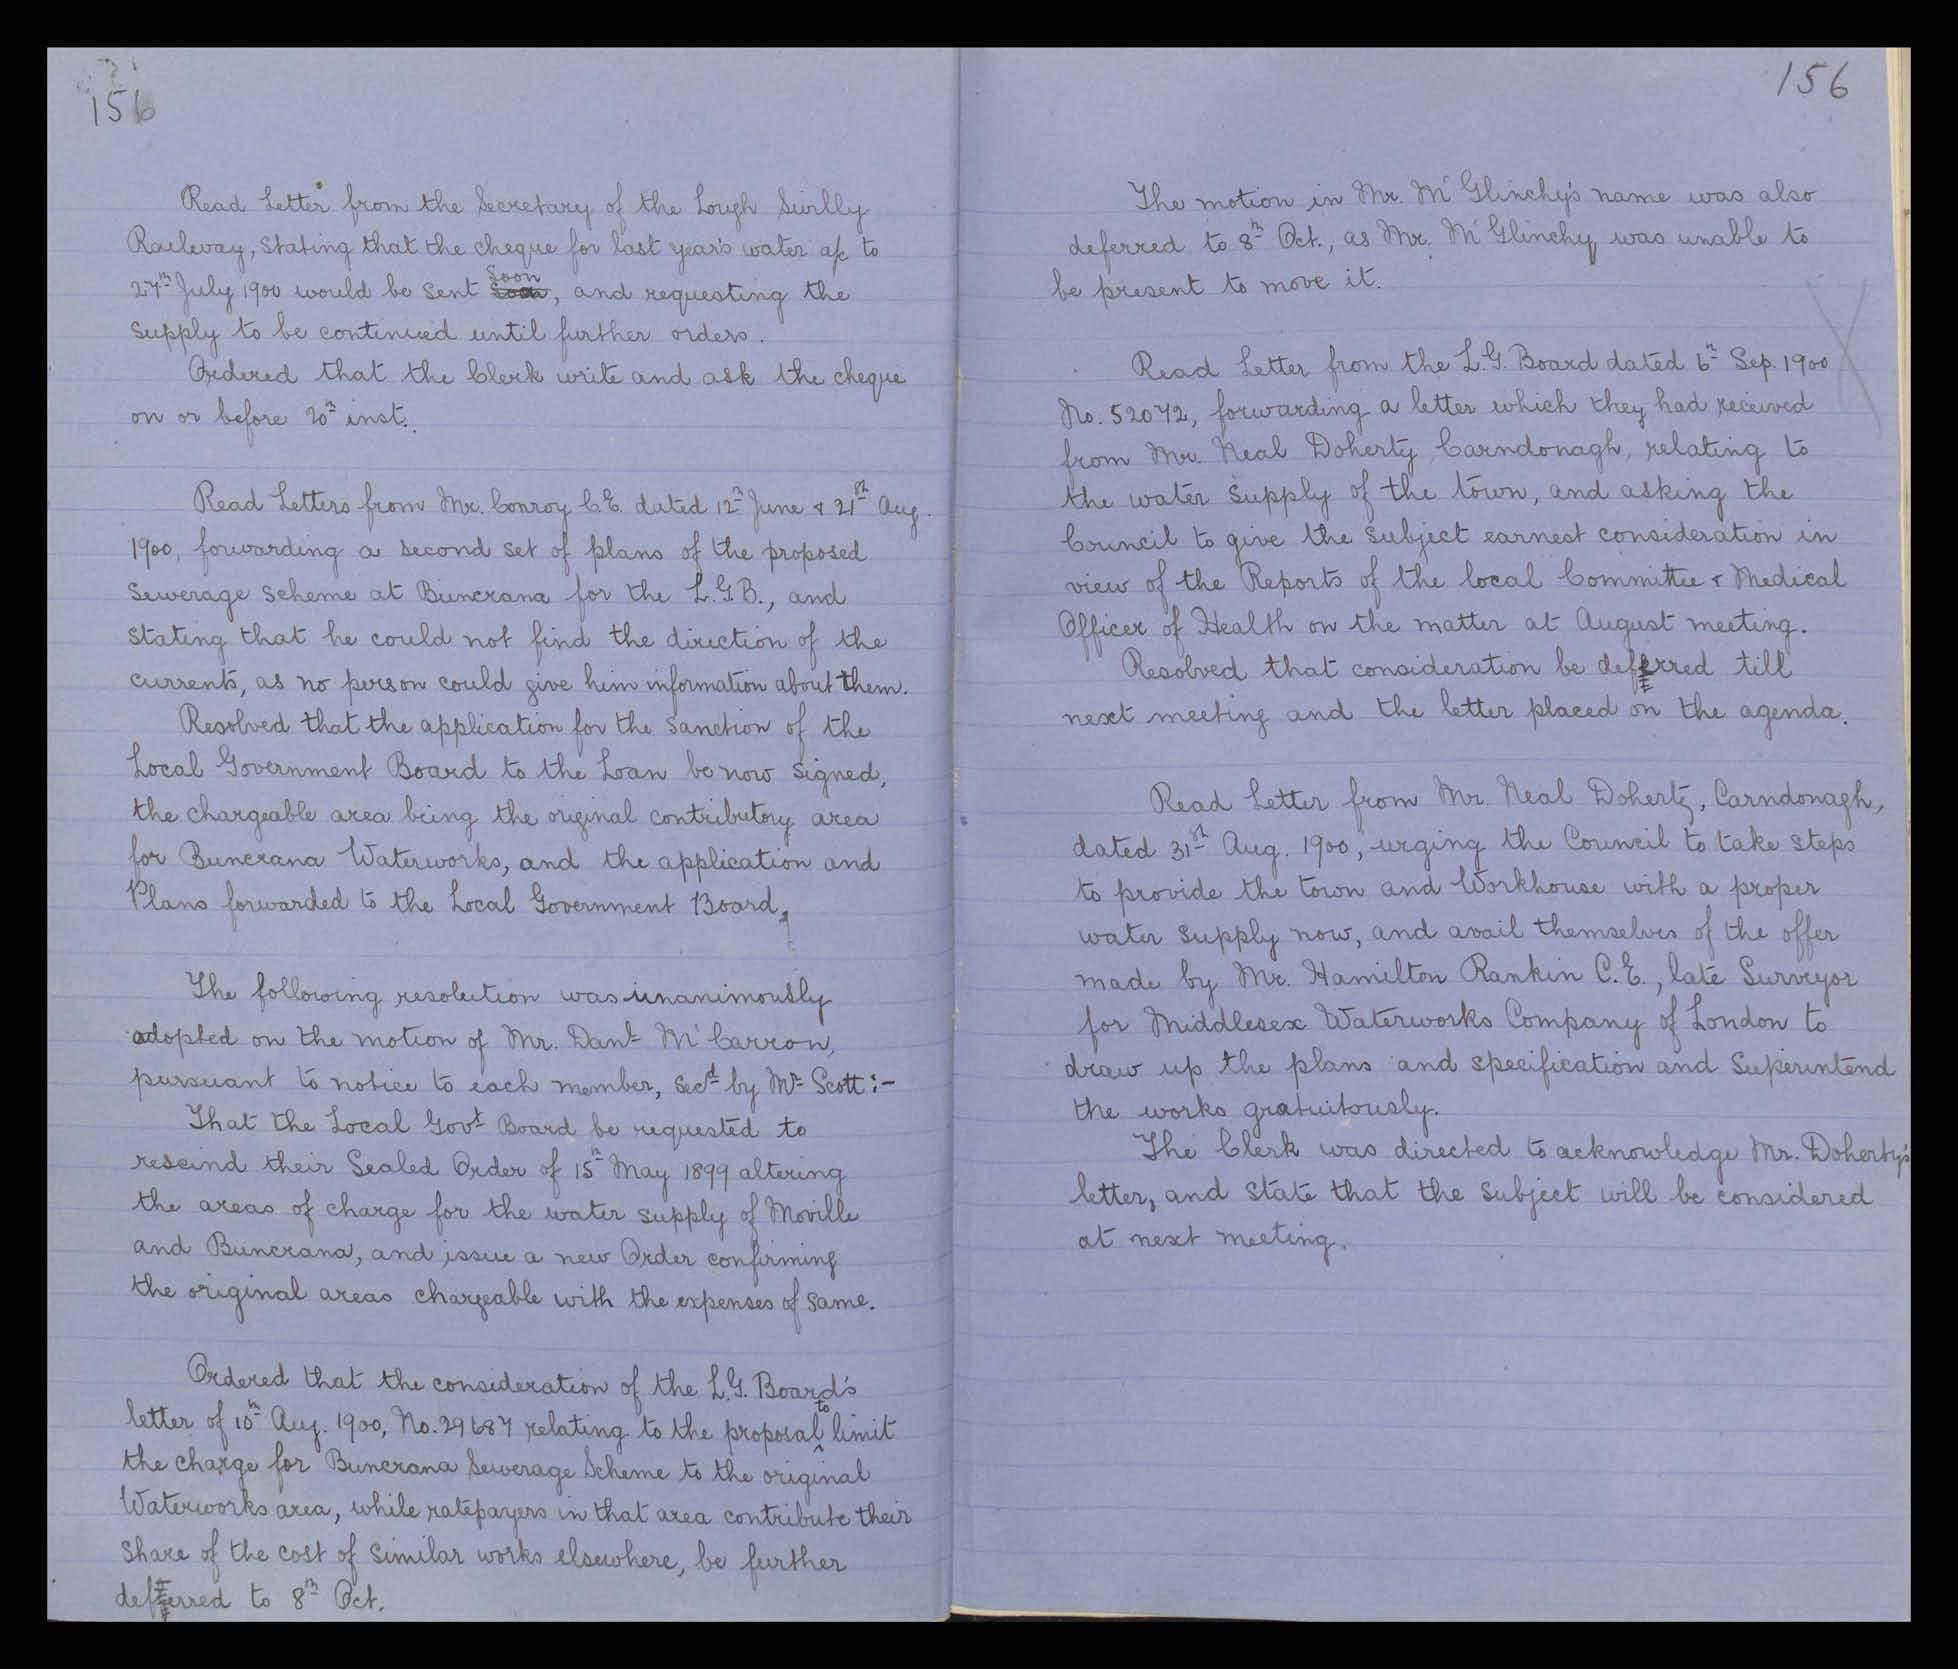 156
Read Letter from the Secretary of the Lough Swilly
Railway, stating that the cheque for last year's water a/c to
27th July 1900 would be sent soon, and requesting the
supply to be continued until further orders.
Ordered that the Clerk write and ask the cheque
on or before 20th inst.
Read Letters from Mr. Conroy C.E. dated 12th June & 21st Aug.
1900, forwarding a second set of plans of the proposed
sewerage scheme at Buncrana for the L.G.B., and
stating that he could not find the direction of the
currents, as no person could give him information about them.
Resolved that the application for the sanction of the
Local Government Board to the Loan be now signed,
the chargeable area being the original contributory area
for Buncrana Waterworks, and the application and
Plans forwarded to the Local Government Board.
The following resolution was unanimously
adopted on the motion of Mr. Danl McCarron,
pursuant to notice to each member, Secd by Mr Scott:-
That the Local Govt Board be requested to
rescind their Sealed Order of 15th May 1899 altering
the areas of charge for the water supply of Moville
and Buncrana, and issue a new Order confirming
the original areas chargeable with the expenses of same.
Ordered that the consideration of the L.G. Board's
letter of 10th Aug. 1900, No. 29687 relating to the proposal to limit
the charge for Buncrana Sewerage Scheme to the original
Waterworks area, while ratepayers in that area contribute their
share of the cost of similar works elsewhere, be further
deferred to 8th Oct.
156
The motion in Mr. McGlinchy's name was also
deferred to 8th Oct., as Mr. McGlinchy was unable to
be present to move it.
Read Letter from the L.G. Board dated 6th Sep. 1900
No. 52072, forwarding a letter which they had received
from Mr. Neal Doherty, Carndonagh, relating to
the water supply of the town, and asking the
Council to give the subject earnest consideration in
view of the Reports of the local Committee & Medical
Officer of Health on the matter at August meeting.
Resolved that consideration be deferred till
next meeting and the letter placed on the agenda.
Read Letter from Mr. Neal Doherty, Carndonagh,
dated 31st Aug. 1900, urging the Council to take steps
to provide the town and Workhouse with a proper
water supply now, and avail themselves of the offer
made by Mr. Hamilton Rankin C.E., late Surveyor
for Middlesex Waterworks Company of London to
draw up the plans and specification and Superintend
the works gratuitously.
The Clerk was directed to acknowledge Mr. Doherty's
letter, and state that the subject will be considered
at next meeting.